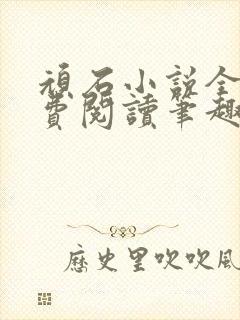 頑石小說全
費閱讀筆趣
歷史里吹吹風